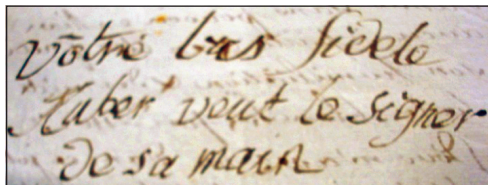 Vôtre bras fidele
Auber veut le signer
de sa main